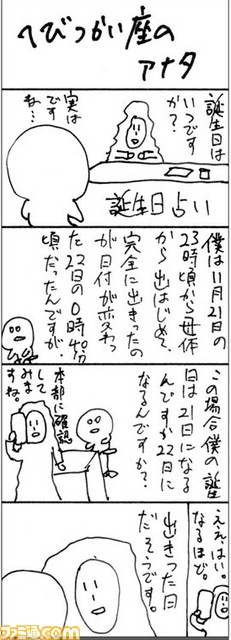 へびつかい座の
アナタ
誕生日は
いつです
か?
実は
ですね…
誕生日占い
僕は11月21日の
23時頃から母体
から出はじめて、
完全に出きったの
が日付が変わっ
た22日の0時40分
頃だったんですが、
この場合僕の誕生
日は21日になる
んですか22日に
なるんですか?
本部に確認
してみま
すね。
ええ、はい。
なるほど。
出きった日
だそうです。
ファミ通.com